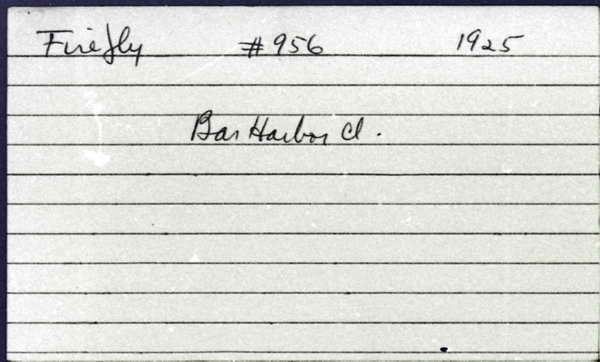 Firefly #956 1925
Bar Harbor Cl.